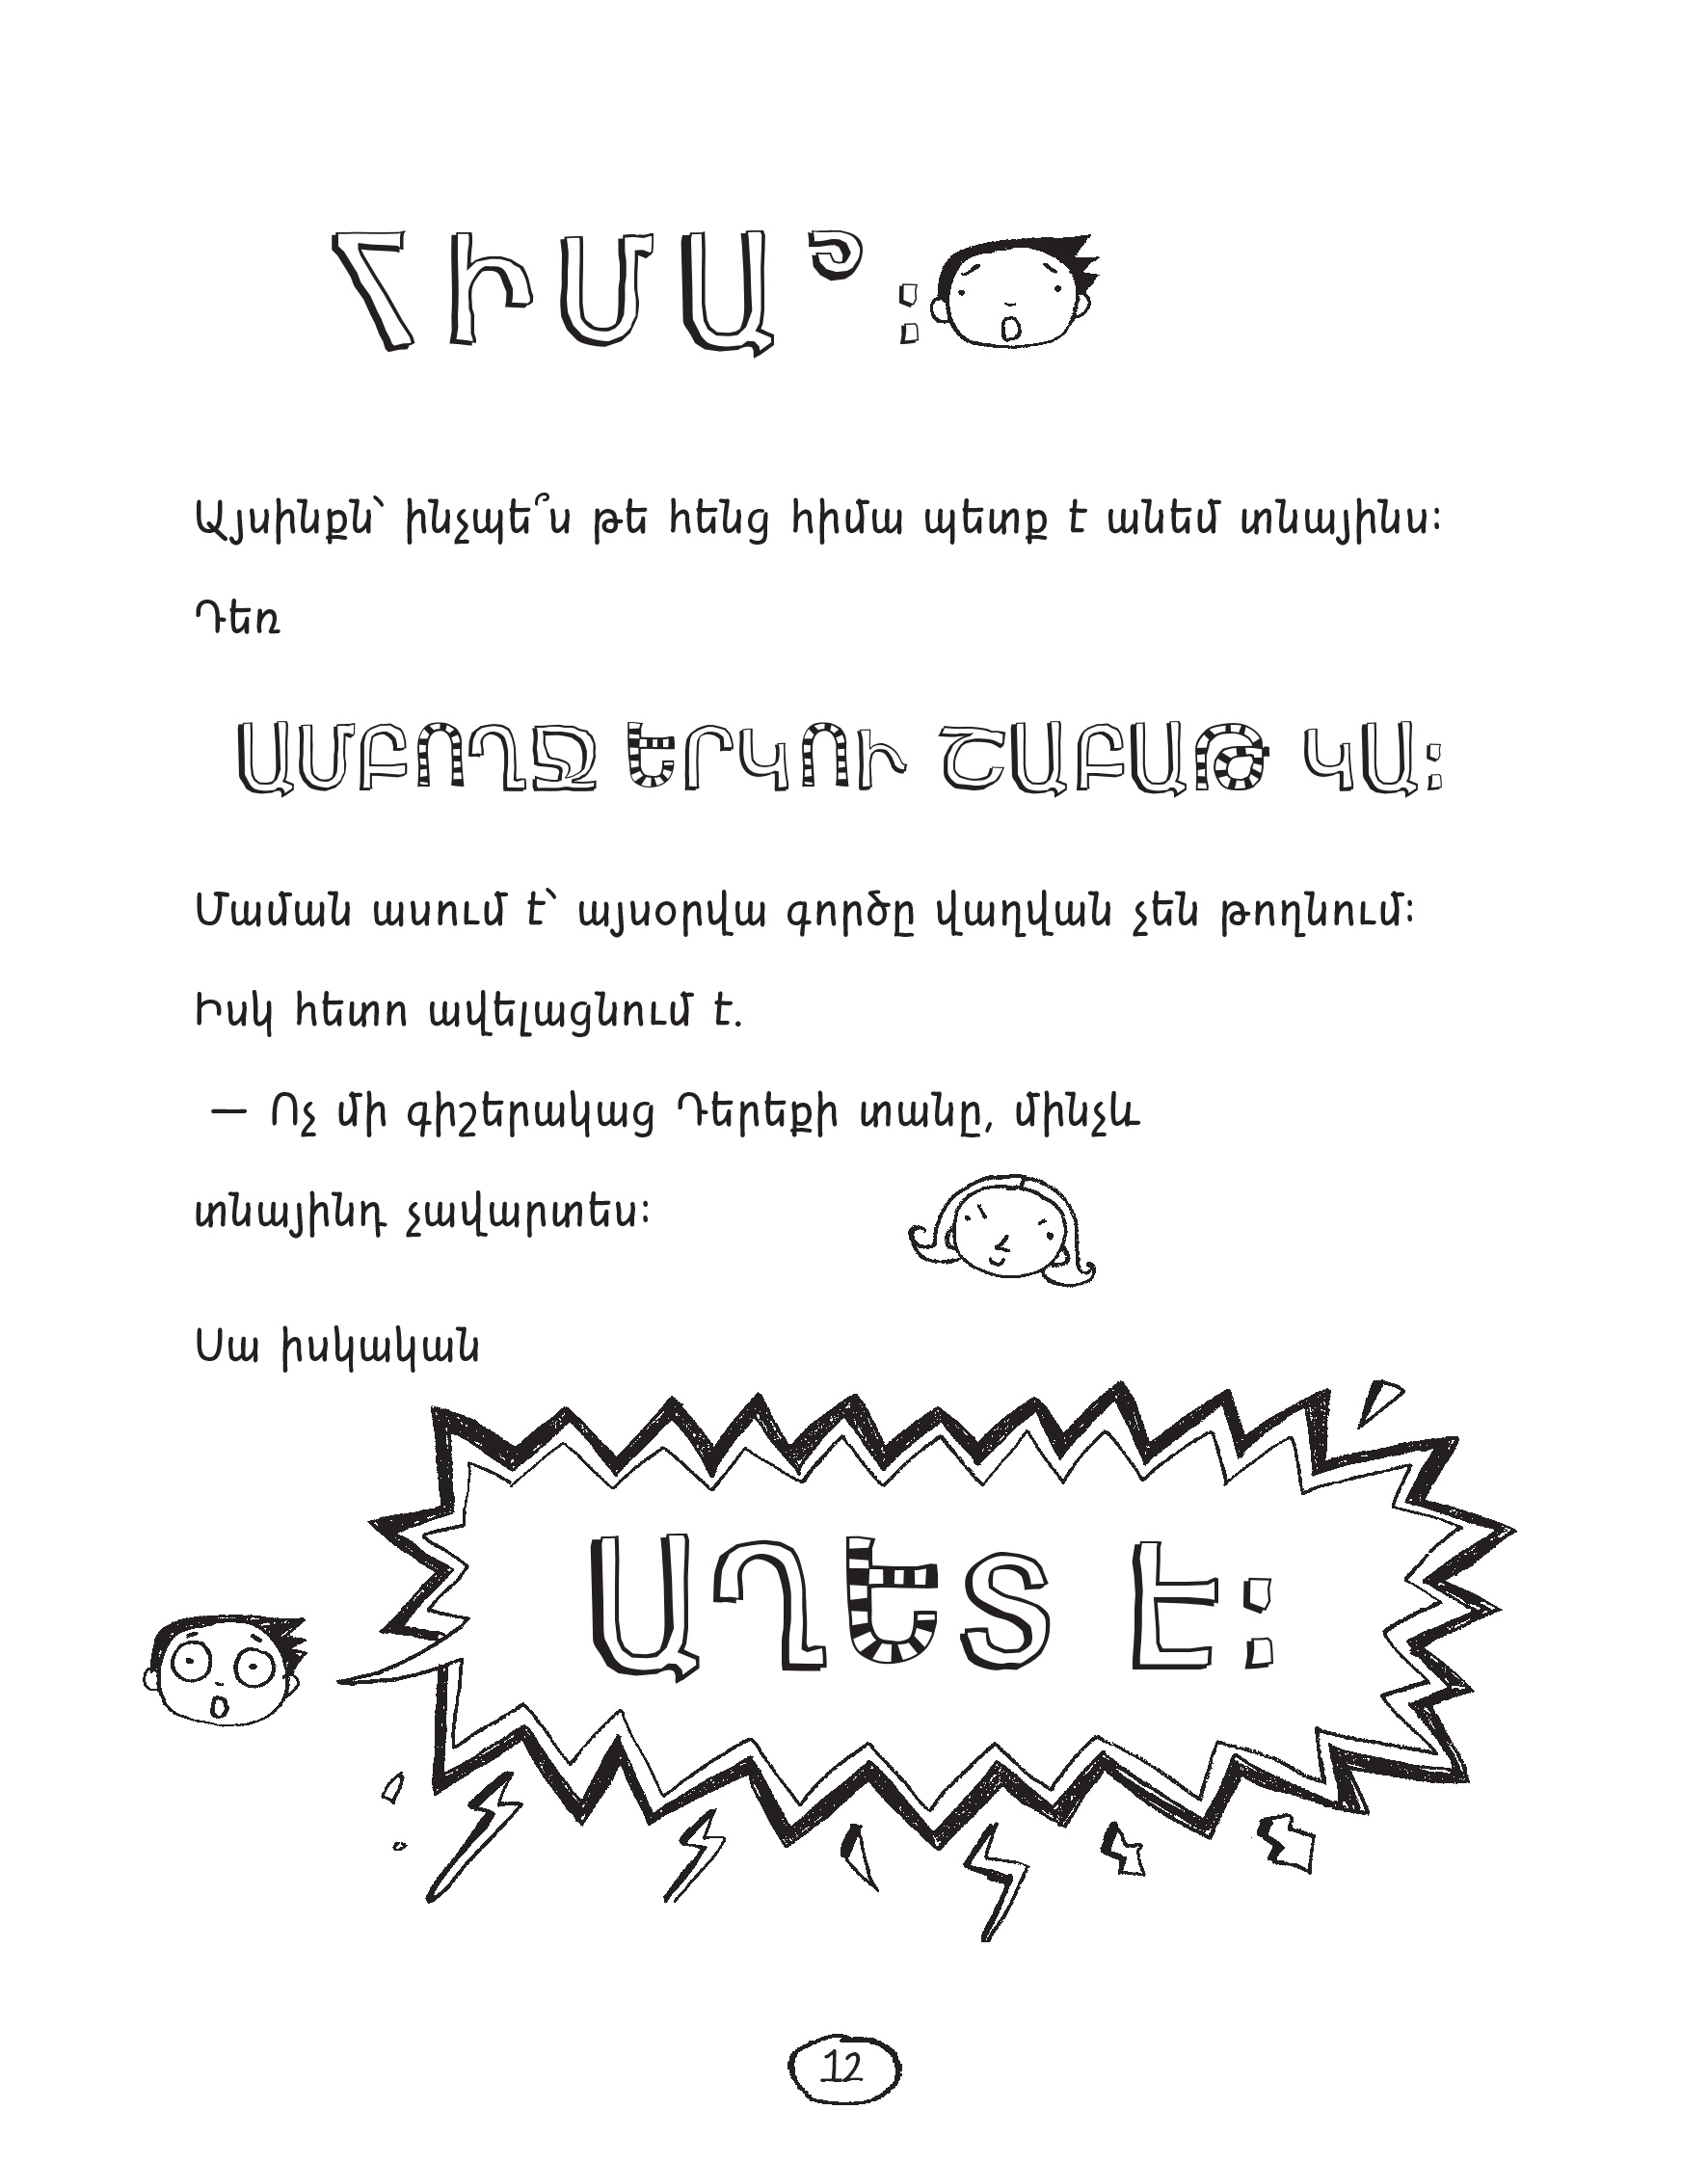 ՀԻՄԱ՞։
Այսինքն՝ ինչպե՞ս թե հենց հիմա պետք է անեմ տնայինս։
Դեռ
ԱՄԲՈՂՋ ԵՐԿՈՒ ՇԱԲԱԹ ԿԱ։
Մաման ասում է՝ այսօրվա գործը վաղվան չեն թողնում։
Իսկ հետո ավելացնում է.
— Ոչ մի գիշերակաց Դերեքի տանը, մինչև
տնայինդ չավարտես։
Սա իսկական
ԱՂԵՏ Է։
12